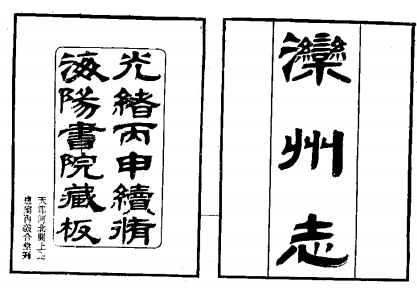 灤州志
光緒丙申續脩
海陽書院藏板
天津河北關上